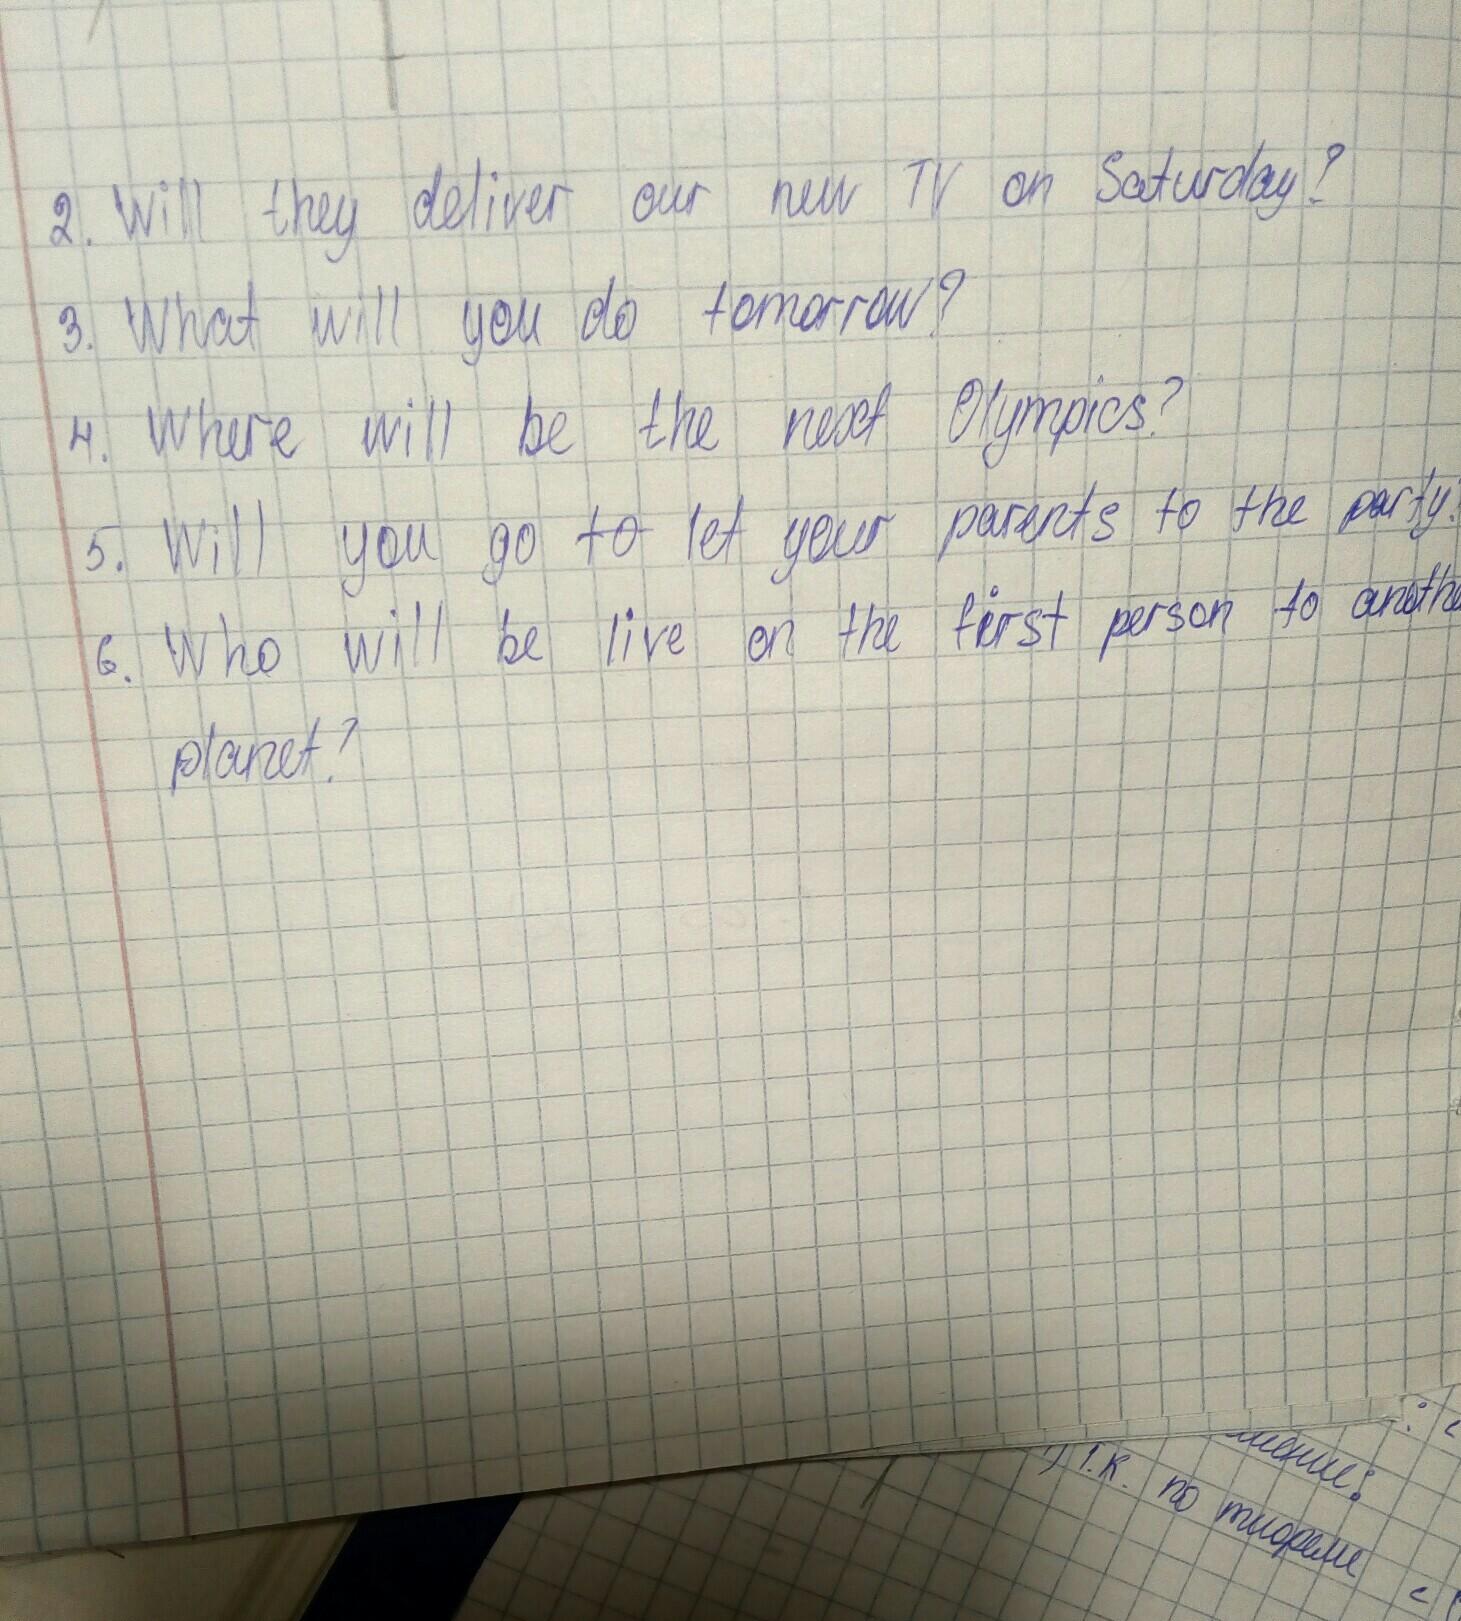 2. Will they deliver our new TV on Saturday?
3. What will you do tomorrow?
4. Where will be the next Olympics?
5. Will you go to let your parents to the party?
6. Who will be live on the first person to anothe
planet?
т.к. по теореме с